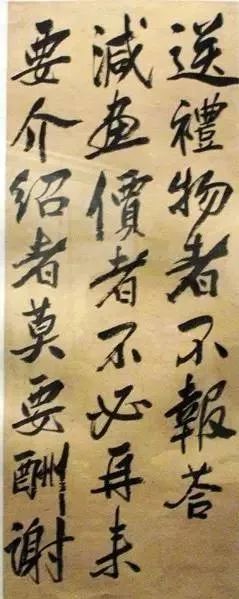 送禮物者不報荅
減畫價者不必再来
要介紹者莫要酬谢